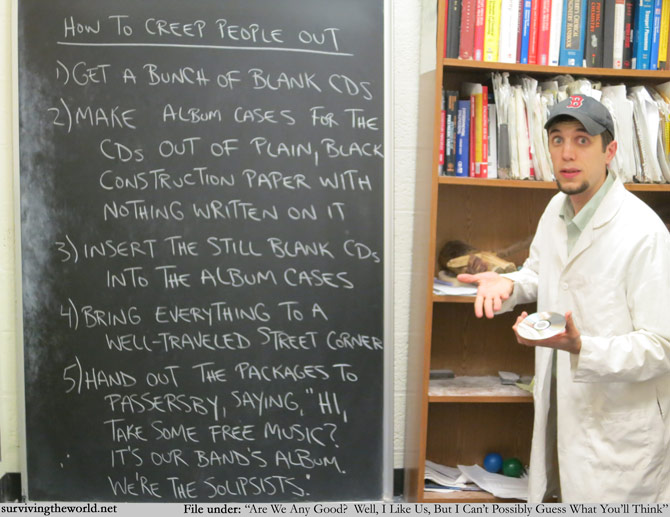 HOW TO CREEP PEOPLE OUT
1) GET A BUNCH OF BLANK CDs
2) MAKE ALBUM CASES FOR THE
CDs OUT OF PLAIN, BLACK
CONSTRUCTION PAPER WITH
NOTHING WRITTEN ON IT
3) INSERT THE STILL BLANK CDs
INTO THE ALBUM CASES
4) BRING EVERYTHING TO A
WELL-TRAVELED STREET CORNER
5) HAND OUT THE PACKAGES TO
PASSERSBY, SAYING, "HI,
TAKE SOME FREE MUSIC?
IT'S OUR BAND'S ALBUM.
WE'RE THE SOLIPSISTS."
B
survivingtheworld.net File under: "Are We Any Good? Well, I Like Us, But I Can't Possibly Guess What You'll Think"